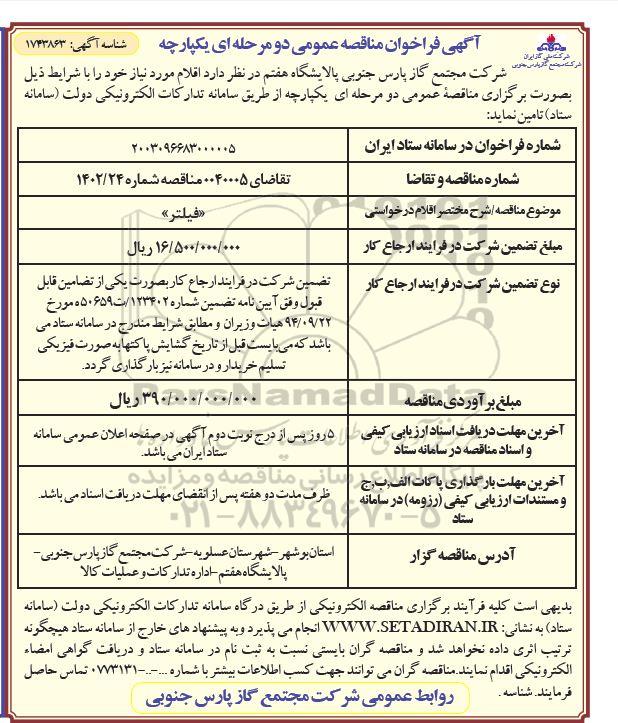 شرکت ملی گاز ایران
شرکت مجتمع گاز پارس جنوبی
آگهی فراخوان مناقصه عمومی دو مرحله ای یکپارچه
شناسه آگهی: ۱۷۴۳۸۶۳
شرکت مجتمع گاز پارس جنوبی پالایشگاه هفتم در نظر دارد اقلام مورد نیاز خود را با شرایط ذیل
بصورت برگزاری مناقصهٔ عمومی دو مرحله ای یکپارچه از طریق سامانه تدارکات الکترونیکی دولت (سامانه
ستاد) تامین نماید:
شماره فراخوان در سامانه ستاد ایران
۲۰۰۳۰۹۶۶۸۳۰۰۰۰۰۵
شماره مناقصه و تقاضا
تقاضای ۰۰۴۰۰۰۵ مناقصه شماره ۱۴۰۲/۲۴
موضوع مناقصه/شرح مختصر اقلام درخواستی
«فیلتر»
مبلغ تضمین شرکت در فرایند ارجاع کار
۱۶/۵۰۰/۰۰۰/۰۰۰ ریال
نوع تضمین شرکت در فرایند ارجاع کار
تضمین شرکت در فرایند ارجاع کار بصورت یکی از تضامین قابل
قبول وفق آیین نامه تضمین شماره ۱۲۳۴۰۲/ت۵۰۶۵۹ه مورخ
۹۴/۰۹/۲۲ هیات وزیران و مطابق شرایط مندرج در سامانه ستاد می
باشد که می‌بایست قبل از تاریخ گشایش پاکتها به صورت فیزیکی
تسلیم خریدار و در سامانه نیز بارگذاری گردد.
مبلغ برآوردی مناقصه
۳۹۰/۰۰۰/۰۰۰/۰۰۰ ریال
آخرین مهلت دریافت اسناد ارزیابی کیفی
و اسناد مناقصه در سامانه ستاد
۵ روز پس از درج نوبت دوم آگهی در صفحه اعلان عمومی سامانه
ستاد ایران می باشد.
آخرین مهلت بارگذاری پاکات الف,ب,ج
و مستندات ارزیابی کیفی (رزومه) در سامانه
ستاد
ظرف مدت دو هفته پس از انقضای مهلت دریافت اسناد می باشد.
آدرس مناقصه گزار
استان بوشهر–شهرستان عسلویه–شرکت مجتمع گاز پارس جنوبی–
پالایشگاه هفتم–اداره تدارکات و عملیات کالا
بدیهی است کلیه فرآیند برگزاری مناقصه الکترونیکی از طریق درگاه سامانه تدارکات الکترونیکی دولت (سامانه
ستاد) به نشانی: WWW.SETADIRAN.IR انجام می پذیرد و به پیشنهاد های خارج از سامانه ستاد هیچگونه
ترتیب اثری داده نخواهد شد و مناقصه گران بایستی نسبت به ثبت نام در سامانه ستاد و دریافت گواهی امضاء
الکترونیکی اقدام نمایند.مناقصه گران می توانند جهت کسب اطلاعات بیشتر با شماره ...-..-۰۷۷۳۱۳۱ تماس حاصل
فرمایند.شناسه .
روابط عمومی شرکت مجتمع گاز پارس جنوبی
ParsNamadData
پایگاه اطلاع رسانی مناقصه و مزایده
۰۲۱-۸۸۳۴۹۶۷۰-۵